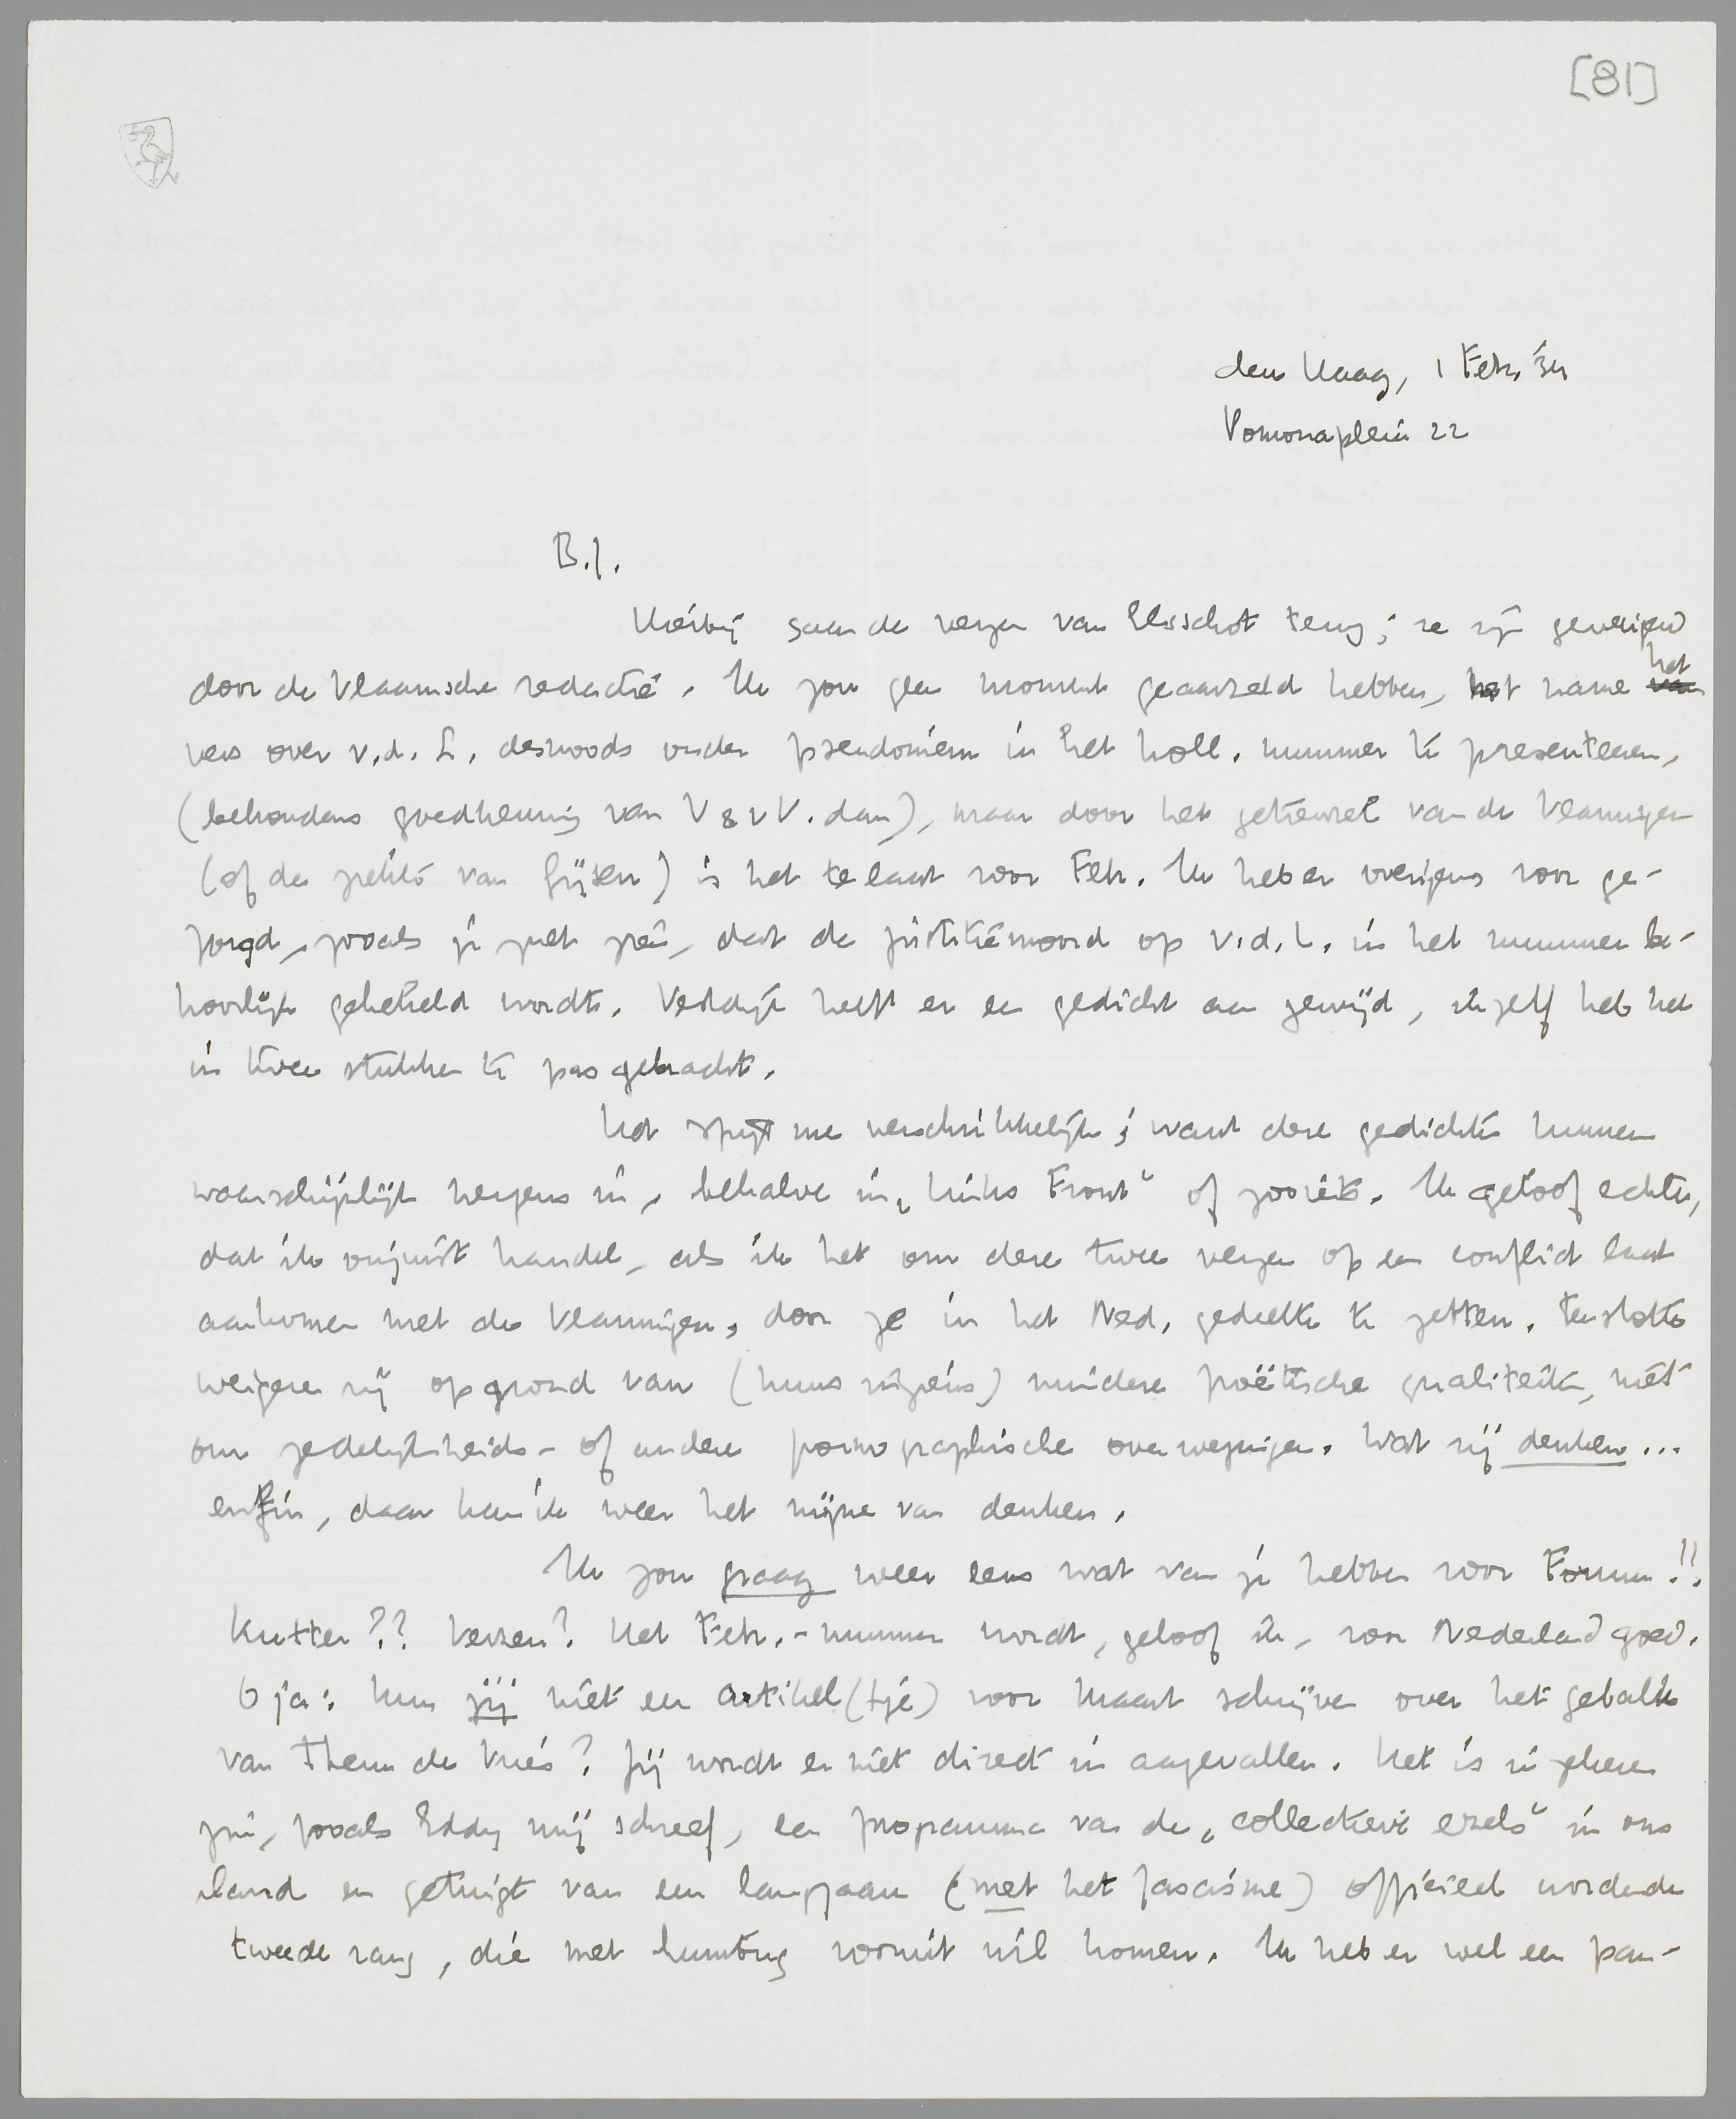 [81]
den Haag, 1 Febr. '34
Pomonaplein 22
B.J.
Hierbij gaan de verzen van Elsschot terug; ze zijn geweigerd
door de Vlaamsche redactie. Ik zou geen moment geaarzeld hebben, met name het
vers over v.d. L. desnoods onder pseudoniem in het holl. nummer te presenteeren,
(behoudens goedkeuring van V & v V. dan), maar door het getreuzel van de Vlamingen
(of de ziekte van Gijsen) is het te laat voor Febr. Ik heb er overigens voor ge-
zorgd, zooals je ziet zien, dat de justitiemoord op v.d. L. in het nummer be-
hoorlijk gehekeld wordt. Vestdijk heeft er een gedicht aan gewijd, ikzelf heb het
in twee stukken te pas gebracht.
Het spijt me verschrikkelijk; want deze gedichten kunnen
waarschijnlijk nergens in, behalve in „Links Front" of zooiets. Ik geloof echter,
dat ik onjuist handel, als ik het om deze twee verzen op een conflict laat
aankomen met de Vlamingen, door ze in het Ned. gedeelte te zetten. Tenslotte
weigeren zij op grond van (huns inziens) mindere poëtische qualiteiten, niet
om zedelijkheids- of andere pornographische overwegingen. Wat zij denken...
enfin, daar kan ik weer het mijne van denken.
Ik zou graag weer eens wat van je hebben voor Forum!!
Kutter?? Verzen? Het Febr.-nummer wordt, geloof ik, voor Nederland goed.
O ja: kun jij niet een artikel(tje) voor Maart schrijven over het gebalk
van Theun de Vries? Jij wordt er niet direct in aangevallen. Het is in zekeren
zin, zooals Eddy mij schreef, een programma van de „collectieve ezels" in ons
land en getuigt van een langzaam (met het fascisme) officieel wordende
tweede rang, die met humbug vooruit wil komen. Ik heb er wel een pan-